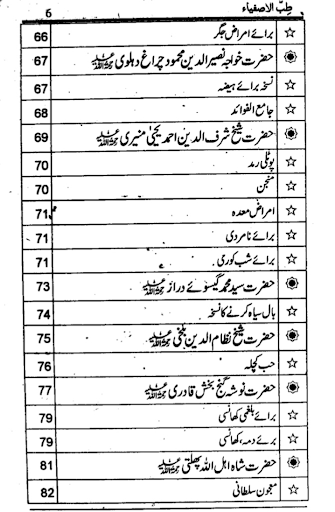 طب الاصفیاء 6
☆ برائے امراض جگر 66
حضرت خواجہ نصیر الدین محمود چراغ دہلوی رحمۃ اللہ علیہ 67
☆ نسخہ برائے ہیضہ 67
☆ جامع الفوائد 68
حضرت شیخ شرف الدین احمد یحییٰ منیری رحمۃ اللہ علیہ 69
☆ پوٹلی رمد 70
☆ منجن 70
☆ امراض معدہ 71
☆ برائے نامردی 71
☆ برائے شب کوری 71
حضرت سید محمد گیسوئے دراز رحمۃ اللہ علیہ 73
☆ بال سیاہ کرنے کا نسخہ 74
حضرت شیخ نظام الدین بلخی رحمۃ اللہ علیہ 75
☆ حب کچلہ 76
حضرت نوشہ گنج بخش قادری رحمۃ اللہ علیہ 77
☆ برائے بلغمی کھانسی 79
☆ برئے دمہ، کھانسی 79
حضرت شاہ اہل اللہ پھلتی رحمۃ اللہ علیہ 81
☆ معجون سلطانی 82